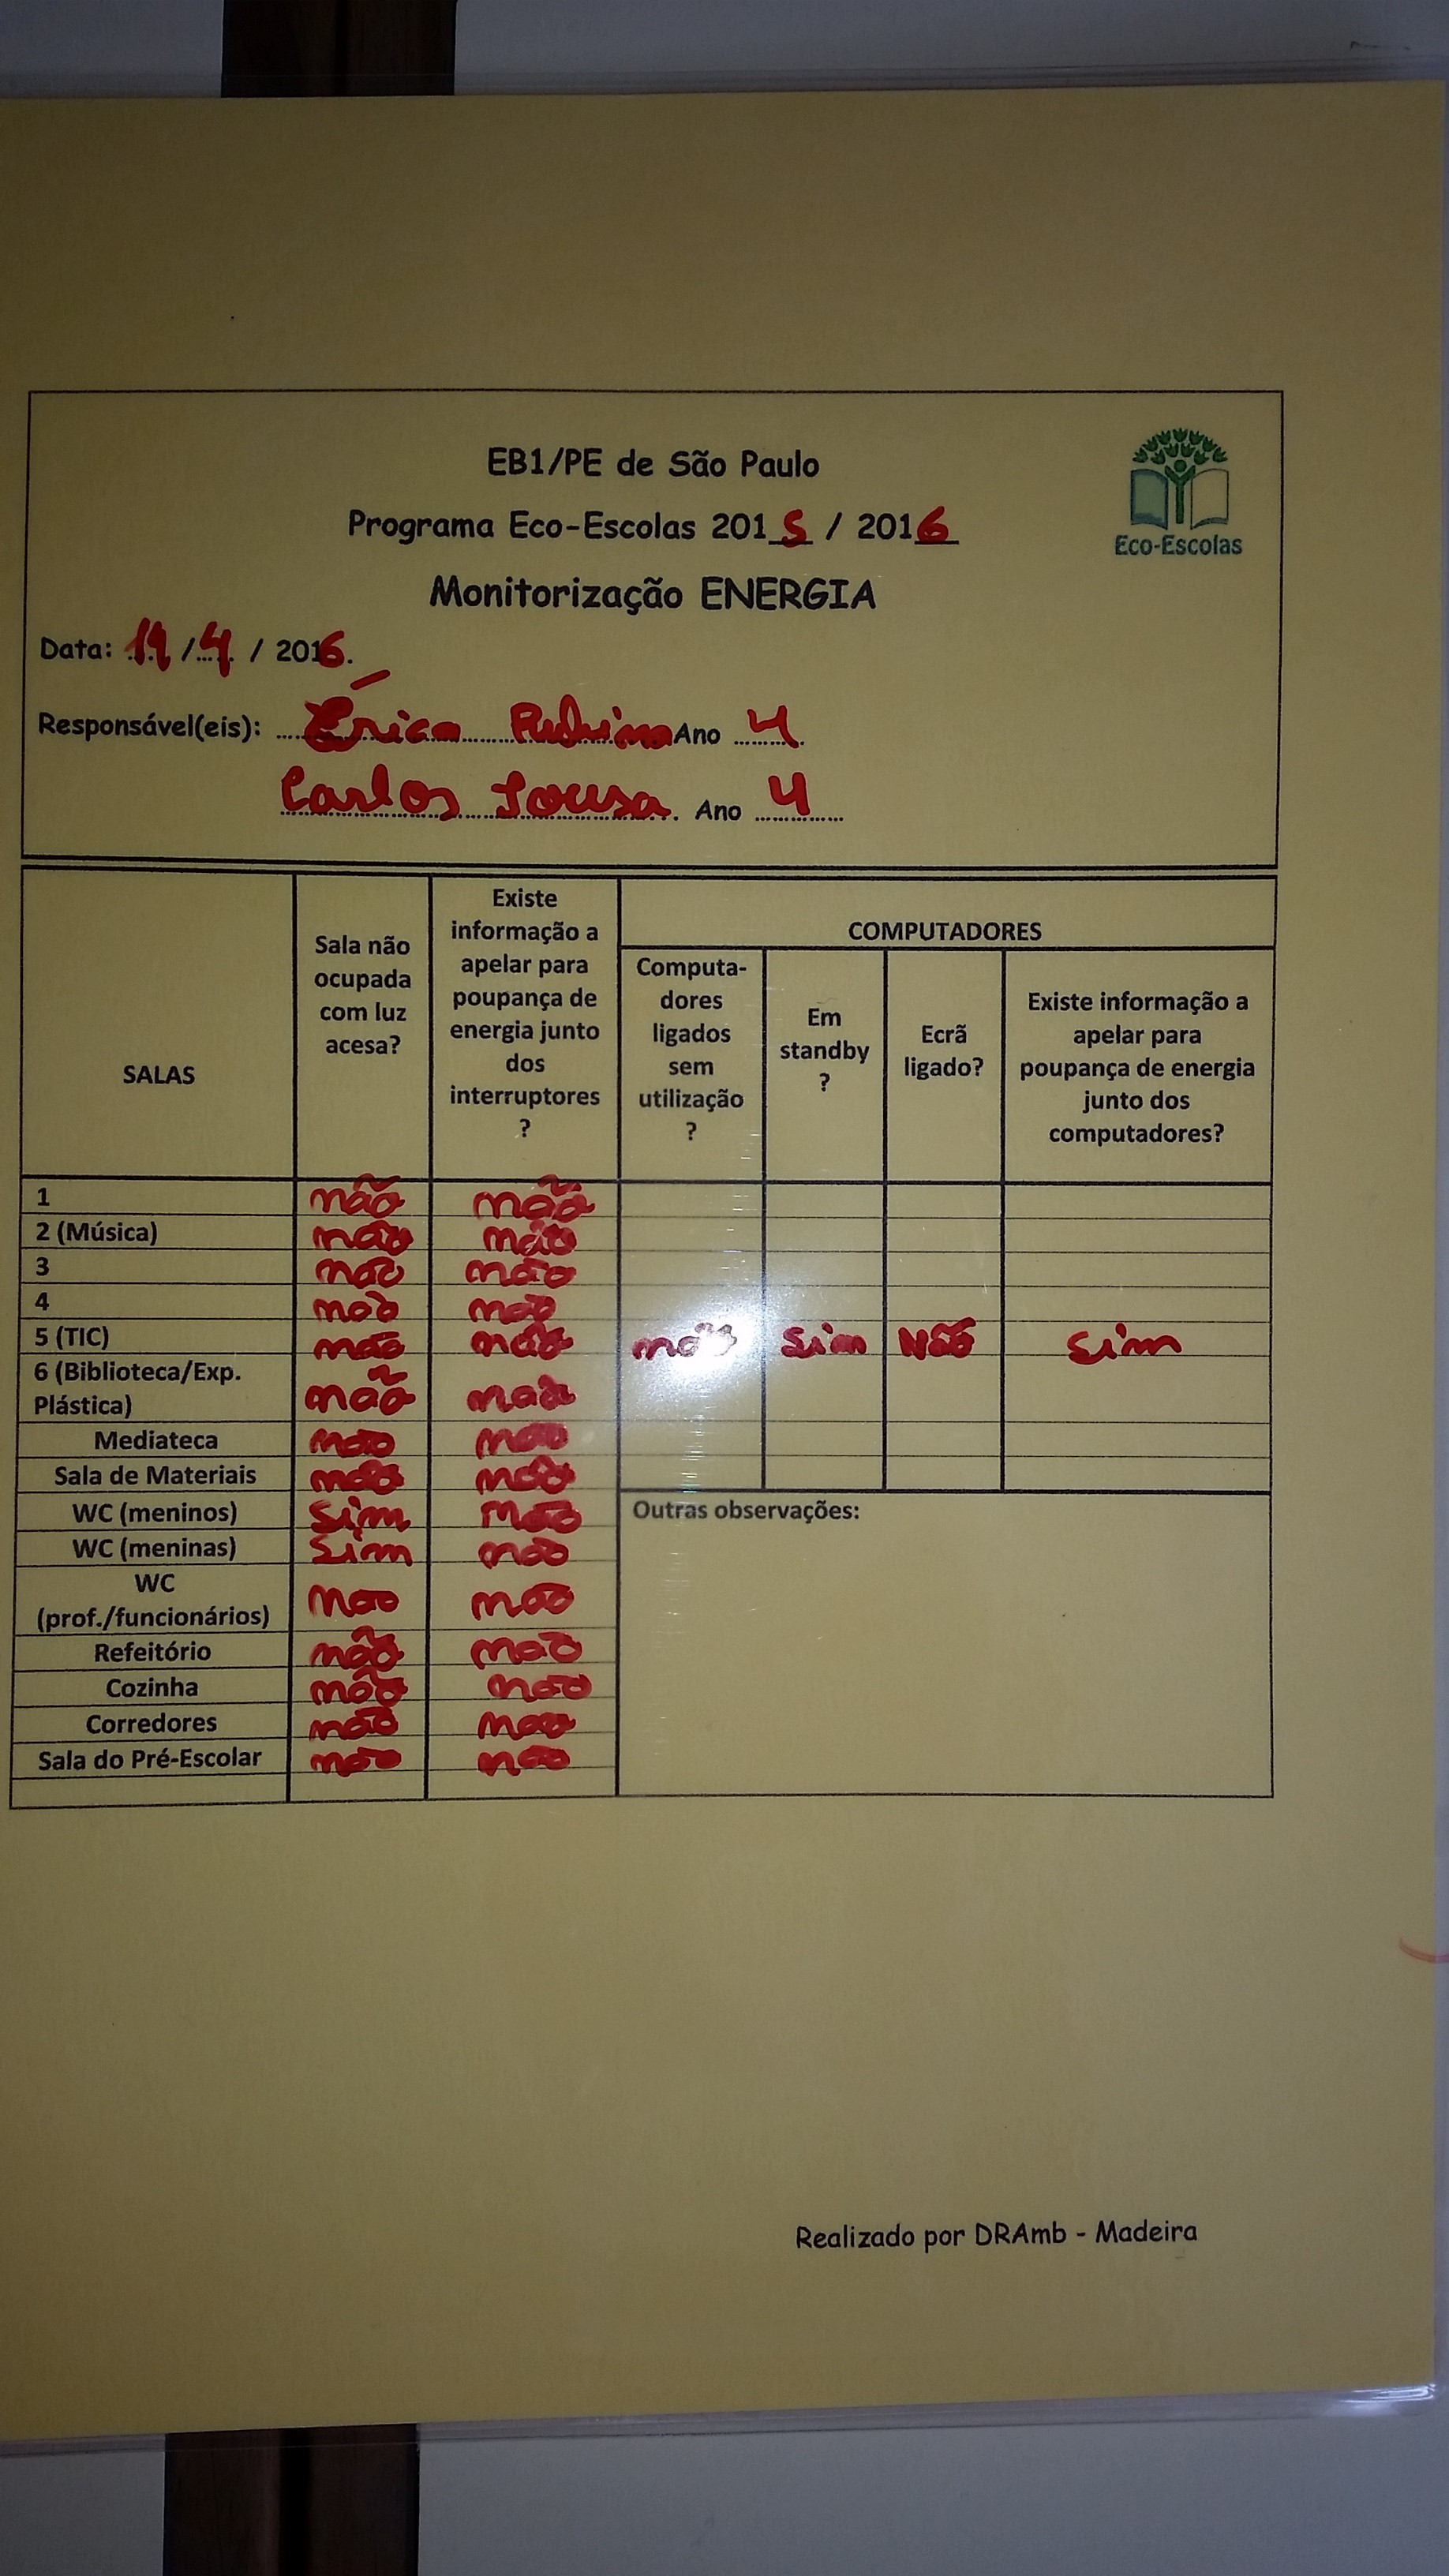 EB1/PE de São Paulo
Programa Eco-Escolas 2015 / 2016
Eco-Escolas
Monitorização ENERGIA
Data: / 4 / 2016.
Responsável(eis): Érica Ano 4
Carlos Sousa. Ano 4
SALAS
Sala não
ocupada
com luz
acesa?
Existe
informação a
apelar para
poupança de
energia junto
dos
interruptores
?
COMPUTADORES
Computa-
dores
ligados
sem
utilização
?
Em
standby
?
Ecrã
ligado?
Existe informação a
apelar para
poupança de energia
junto dos
computadores?
1 não não
2 (Música) não não
3 não não
4 não não
5 (TIC) não não não Sim Não Sim
6 (Biblioteca/Exp.
Plástica) não não
Mediateca não não
Sala de Materiais não não
WC (meninos) Sim não
WC (meninas) Sim não
WC
(prof./funcionários) não não
Refeitório não não
Cozinha não não
Corredores não não
Sala do Pré-Escolar não não
Outras observações:
Realizado por DRAmb - Madeira